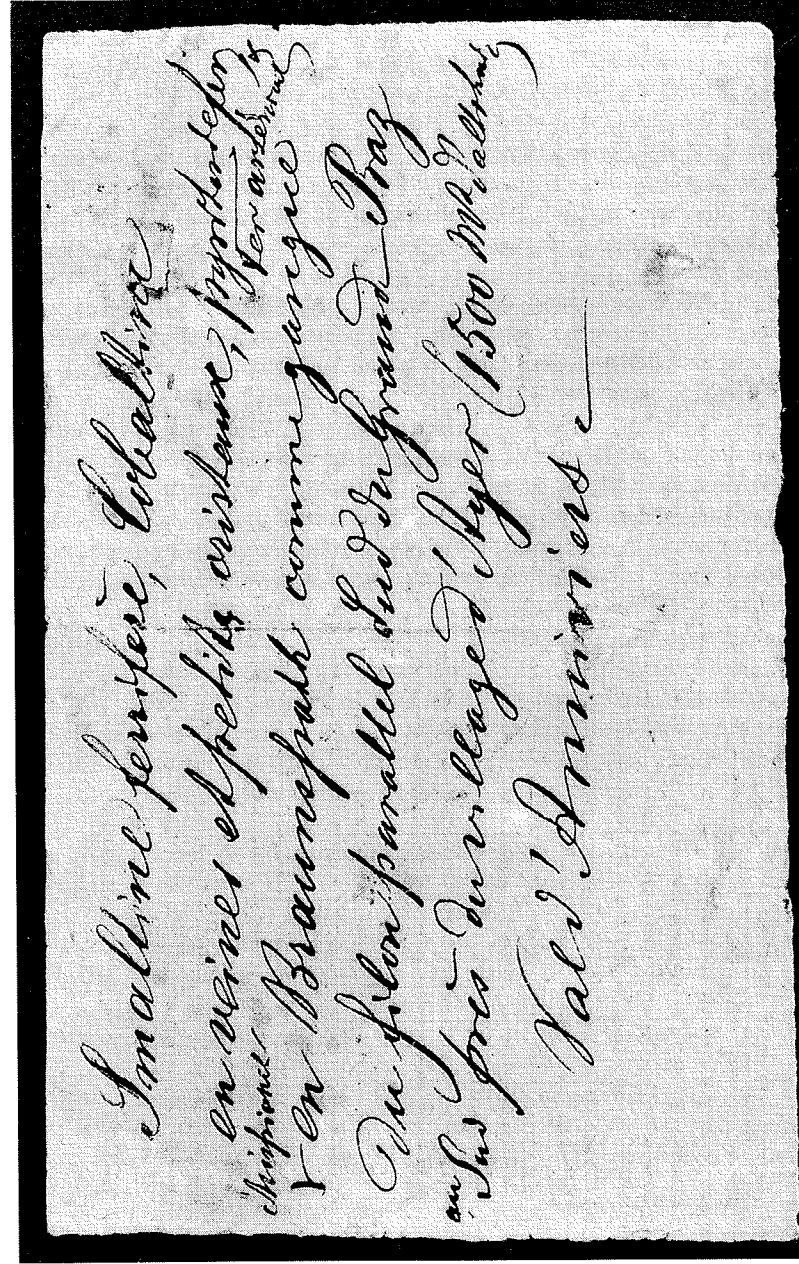 Smaltine ferrifère, Cobaltine
en veines et petits cristaux, pyrites de fer
fer arsenical &
en Braunspath comme gangue
Du filon parallel Sud du Grand Praz
au Sud près du village d'Ayer (1500 Mt
Val d'Anniviers